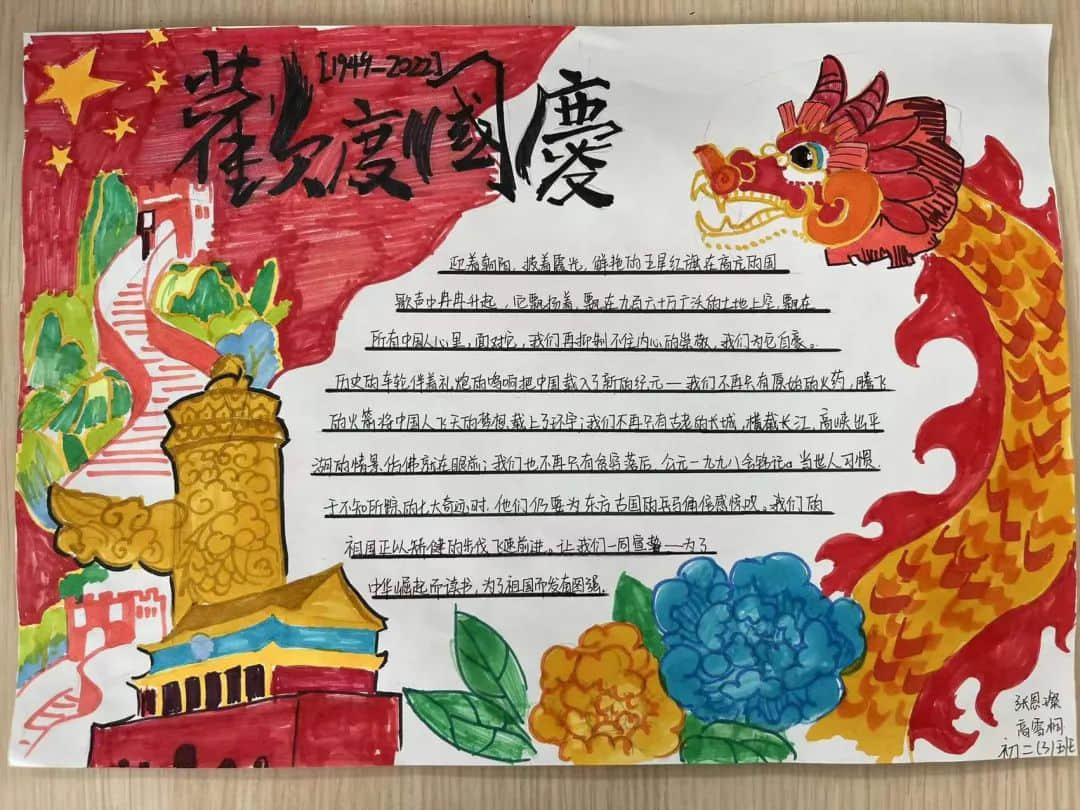 [1949-2022]
歡度國慶
迎着朝阳，披着晨光，鲜艳的五星红旗在高亢的国
歌声中冉冉升起，它飘扬着，飘在九百六十万广沃的土地上空，飘在
所有中国人心里，面对它，我们再抑制不住内心的崇敬，我们为它自豪。
历史的车轮伴着礼炮的鸣响把中国载入了新的纪元—我们不再只有原始的火药，腾飞
的火箭将中国人飞天的梦想载上了环宇；我们不再只有古老的长城，横截长江，高峡出平
湖的情景仿佛就在眼前；我们也不再只有贫穷落后，公元一九九八会铭记。当世人习惯
于不知所踪的七大奇迹时，他们仍要为东方古国的兵马俑倍感惊叹。我们的
祖国正以矫健的步伐飞速前进。让我们一同宣誓—为了
中华崛起而读书，为了祖国而发奋图强。
张恩璨
高雪桐
初二(3)班